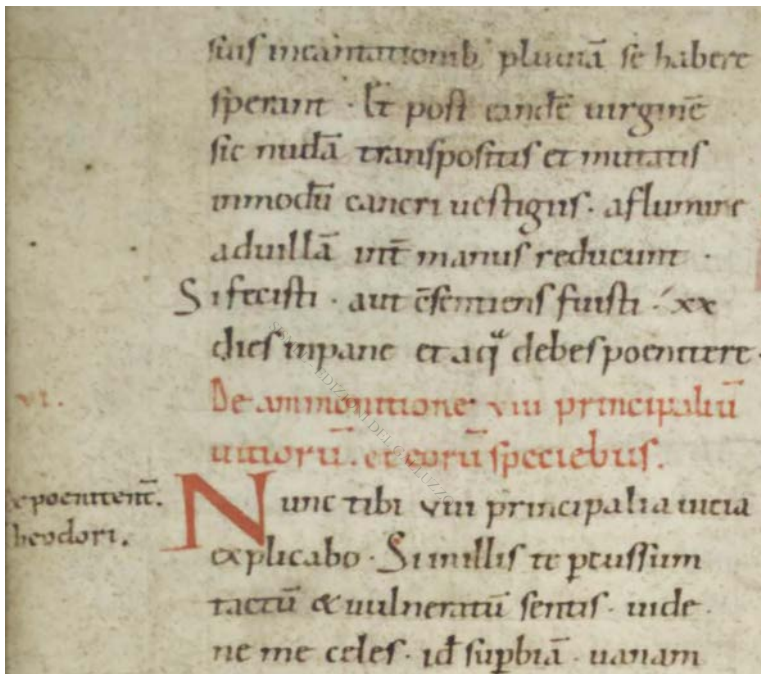 suis incantationib; pluuiā se habere
sperant · Et post eandē uirginē
sic nudā transpositis et mutatis
inmodū cancri uestigiis · aflumine
aduillā int̄ manus reducunt ·
Si fecisti · aut c̄sentiens fuisti · xx
dies inpane et aq̄ debes poenitere ·
VI.
De ammonitione viii principaliū
uitiorū. et eorū speciebus.
ex poenitent̄.
Theodori.
Nunc tibi viii principalia uicia
explicabo · Si in illis te p̲cussum
tactū & uulneratū sentis · uide
ne me celes · id̄ sup̲biā · uanam